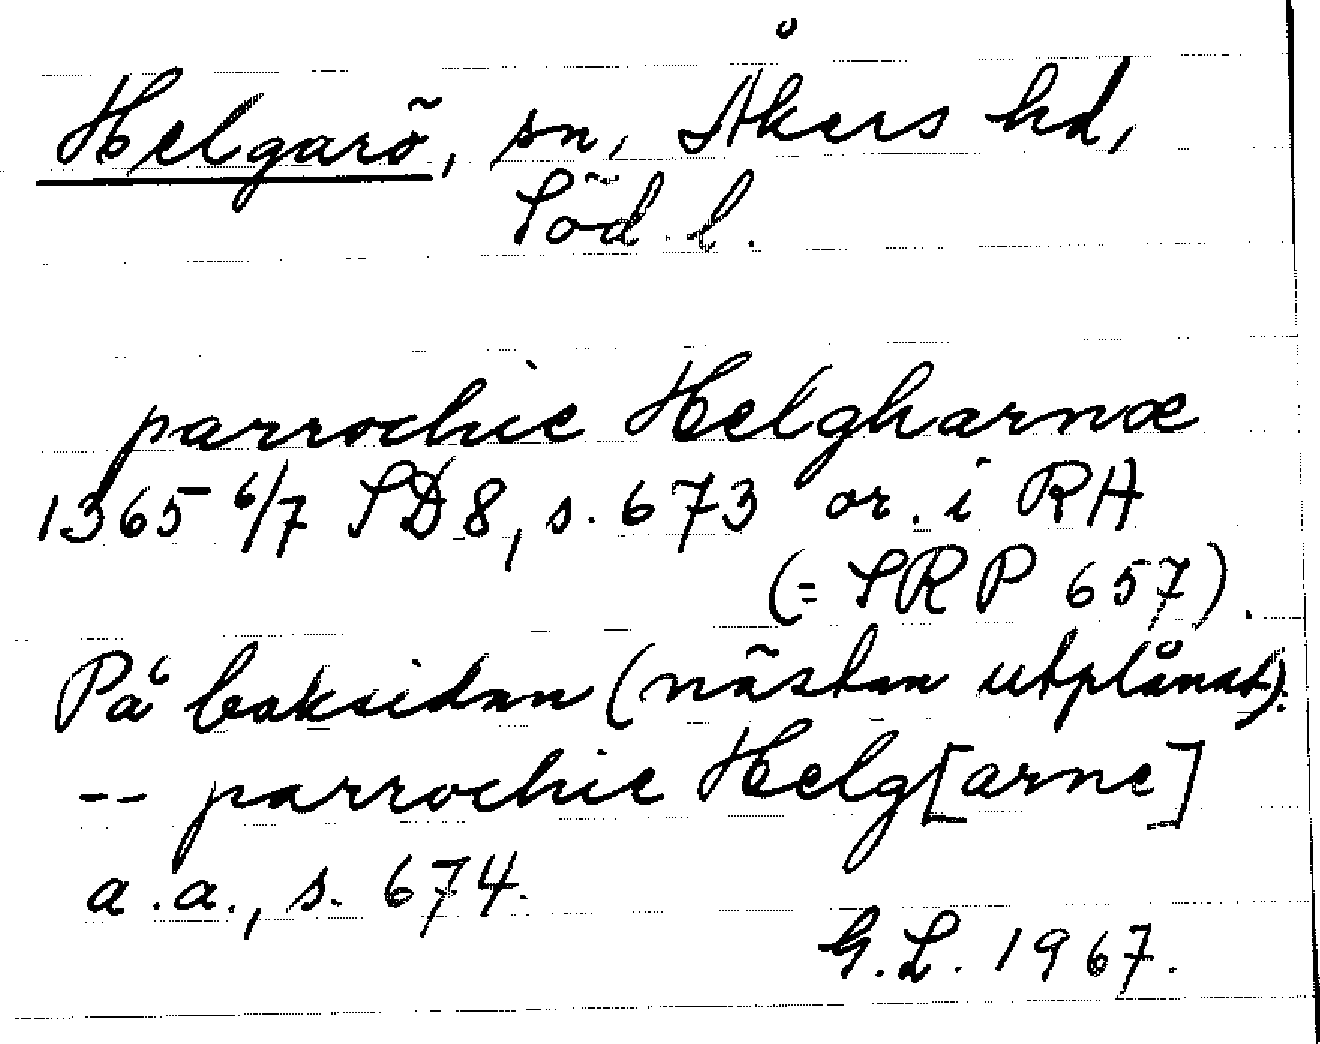 Helgarö, sn, Åkers hd,
Söd. l.
parrochie Helgharnœ
1365 6/7 SD 8, s. 673 or. i RA
(= SRP 657).
På baksidan (nästan utplånat):
-- parrochie Helg[arne]
a.a., s. 674.
G.L. 1967.